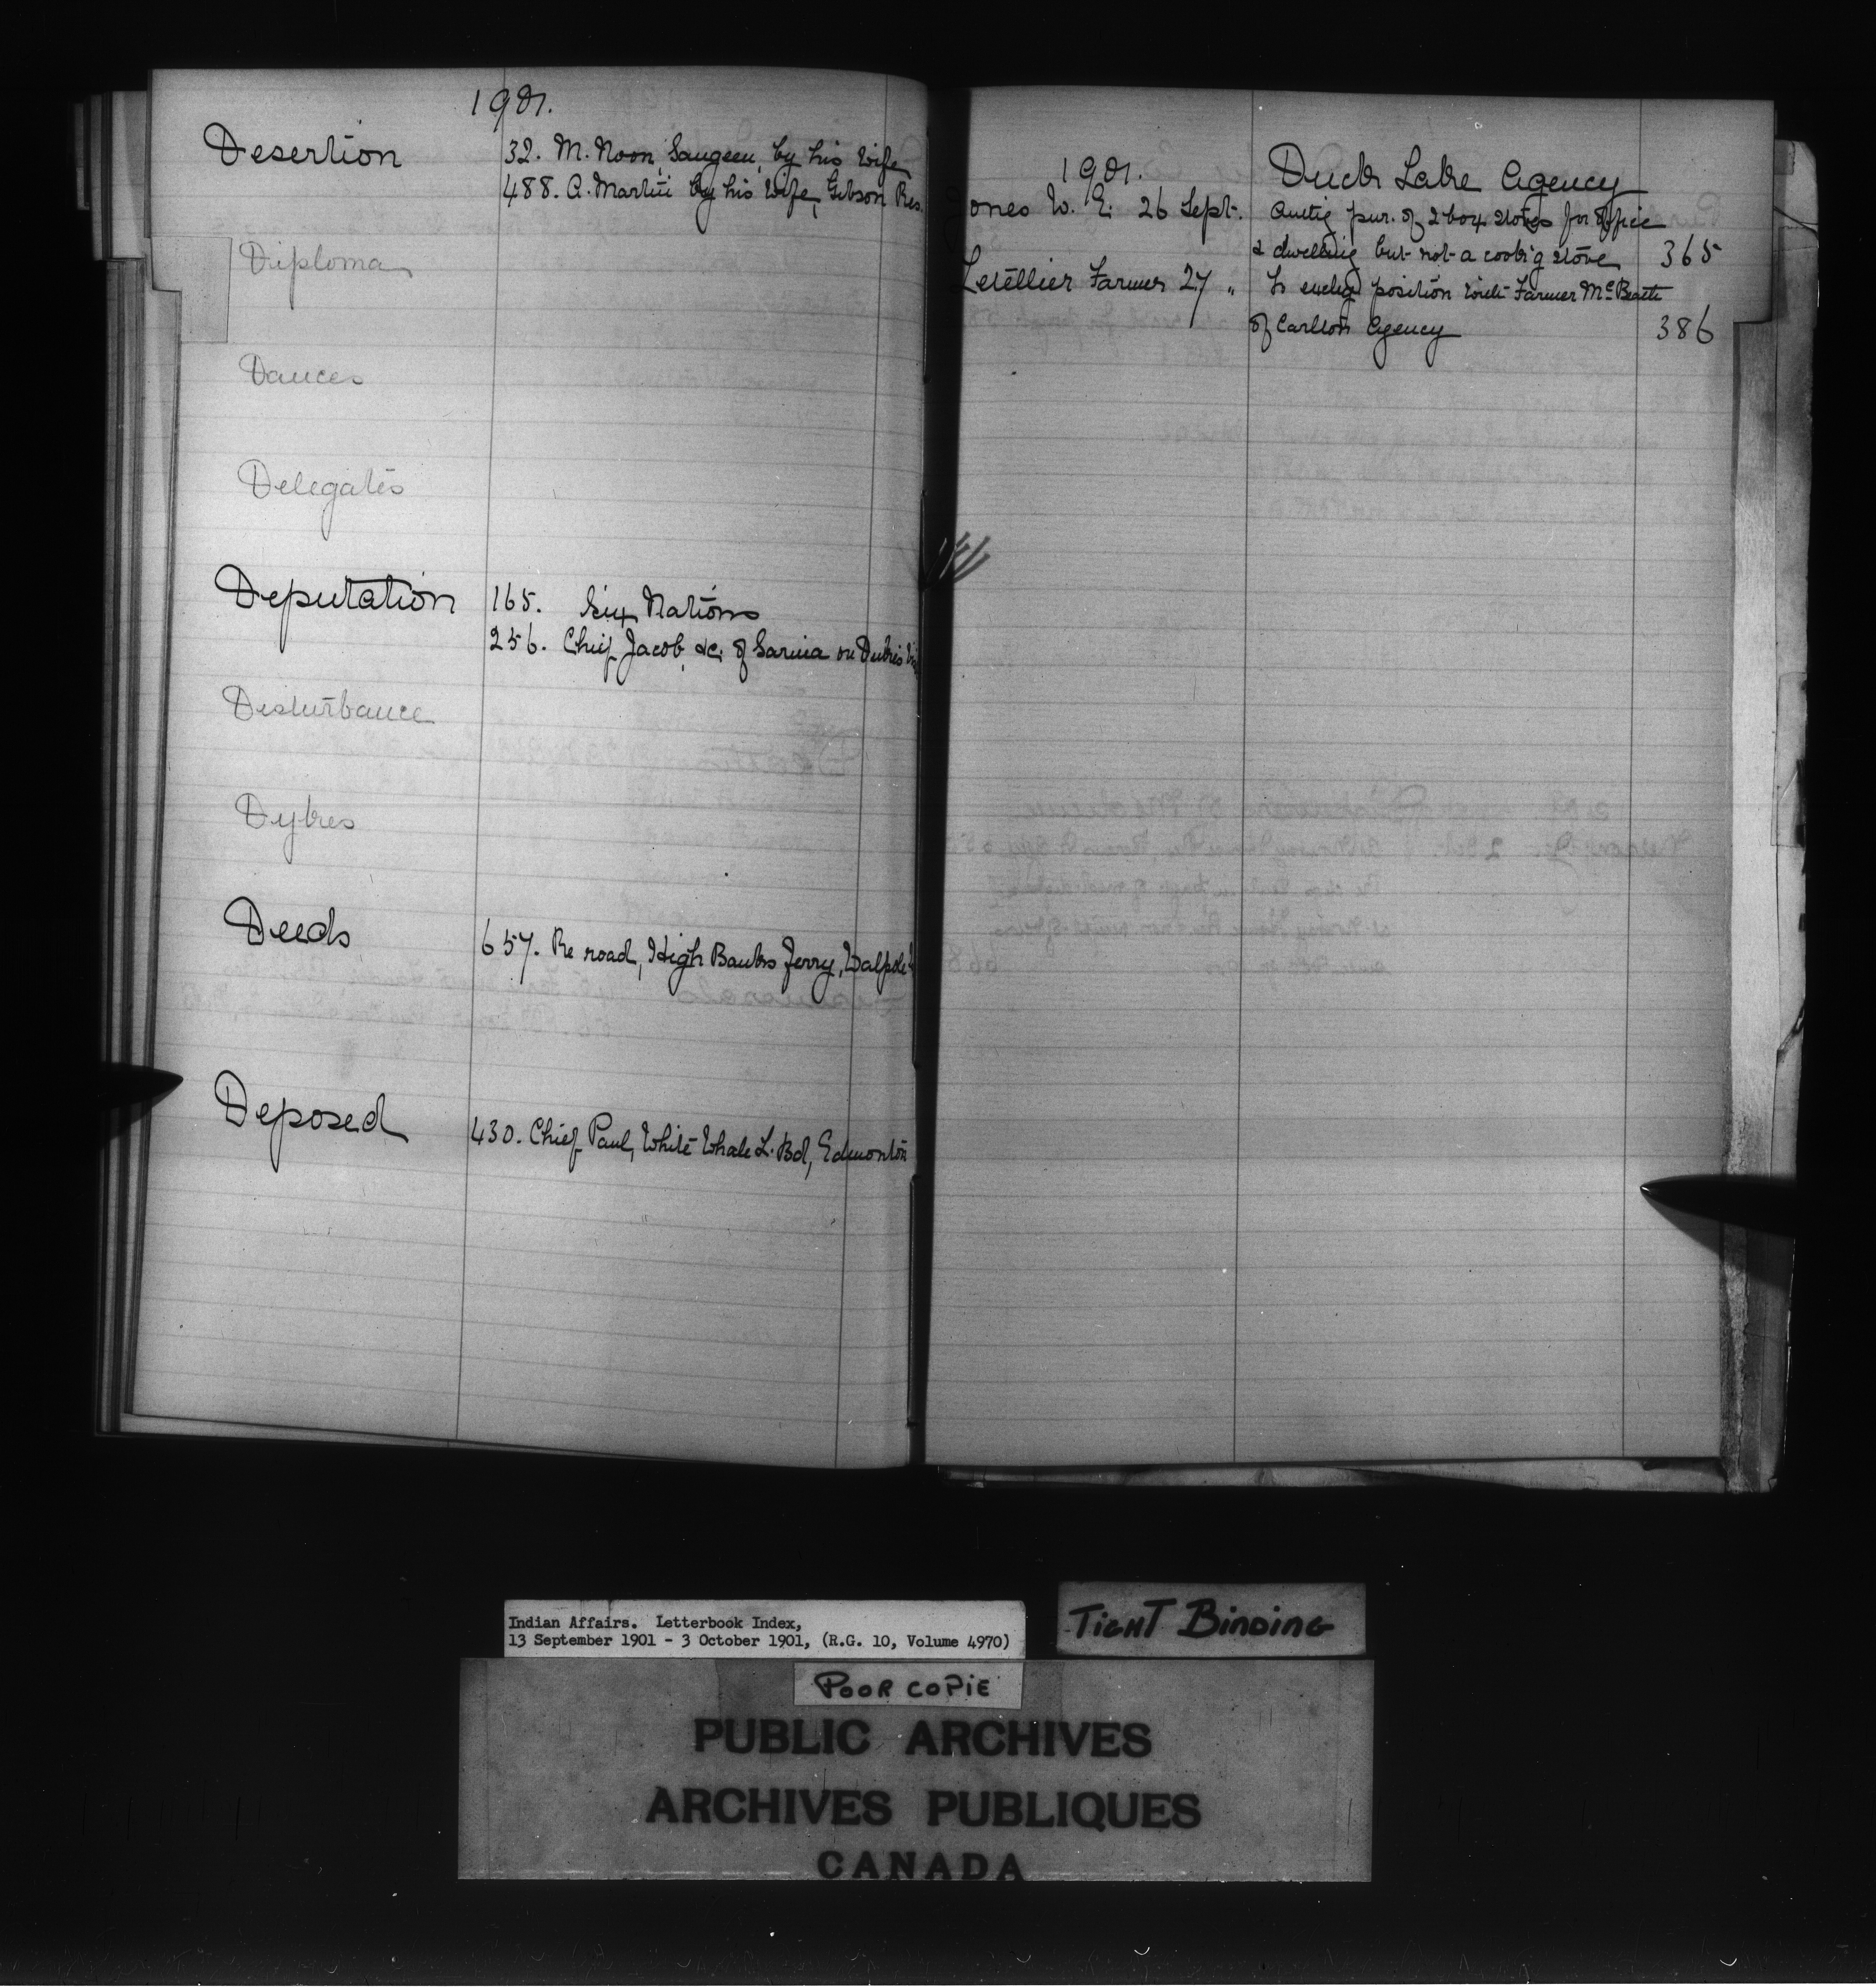 1901.
Desertion
32. M. Noon, Saugeen, by his wife
488. A. Martin by his wife, Gibson Res.
Diploma
Dances
Delegates
Deputation
165. Six Nations
256. Chief Jacob, &c. of Sarnia on
Disturbance
Dykes
Deeds
657. Re road, High Banks Ferry, Walpole
Deposed
430. Chief Paul, White Whale L. Bd, Edmonton
1901.
Duck Lake Agency
ones W. E. 26 Sept.
pur. of 2 box stoves for office
& dwelling but not a cook'g stove 365
Letellier Farmer 27 "
To position with Farmer
of Carlton Agency 386
Indian Affairs. Letterbook Index,
13 September 1901 - 3 October 1901, (R.G. 10, Volume 4970)
TIGHT BINDING
POOR COPIE
PUBLIC ARCHIVES
ARCHIVES PUBLIQUES
CANADA